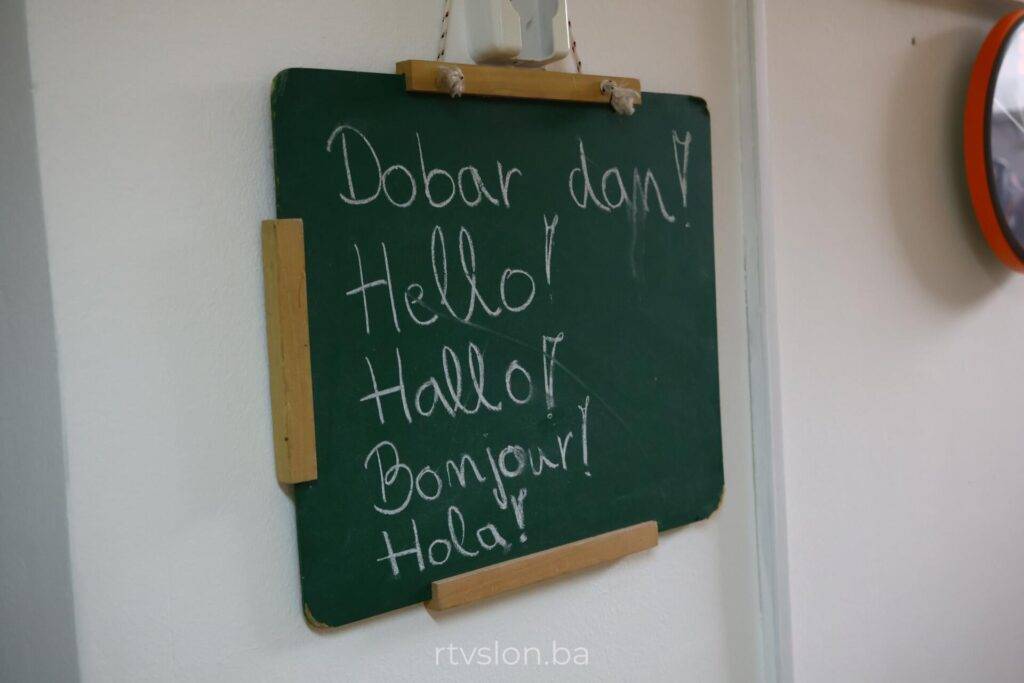 Dobar dan!
Hello!
Hallo!
Bonjour!
Hola!
rtvslon.ba